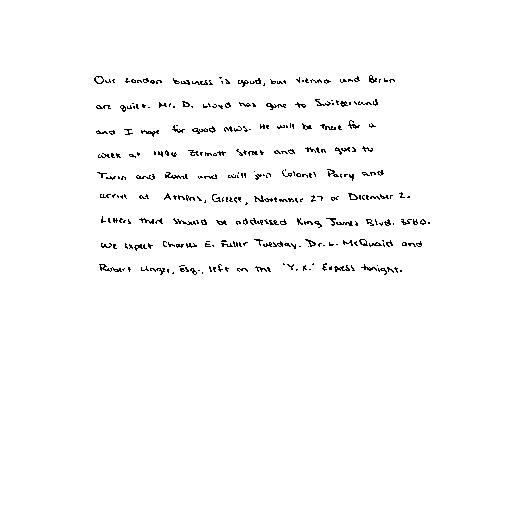 Our London business is good, but Vienna and Berlin
are quiet. Mr. D. Lloyd has gone to Switzerland
and I hope for good news. He will be there for a
week at 1496 Zermott Street and then goes to
Turin and Rome and will join Colonel Parry and
arrive at Athens, Greece, November 27 or December 2.
Letters there should be addressed King James Blvd. 3580.
We expect Charles E. Fuller Tuesday. Dr. L. McQuaid and
Robert Unger, Esq., left on the "Y.X." Express tonight.